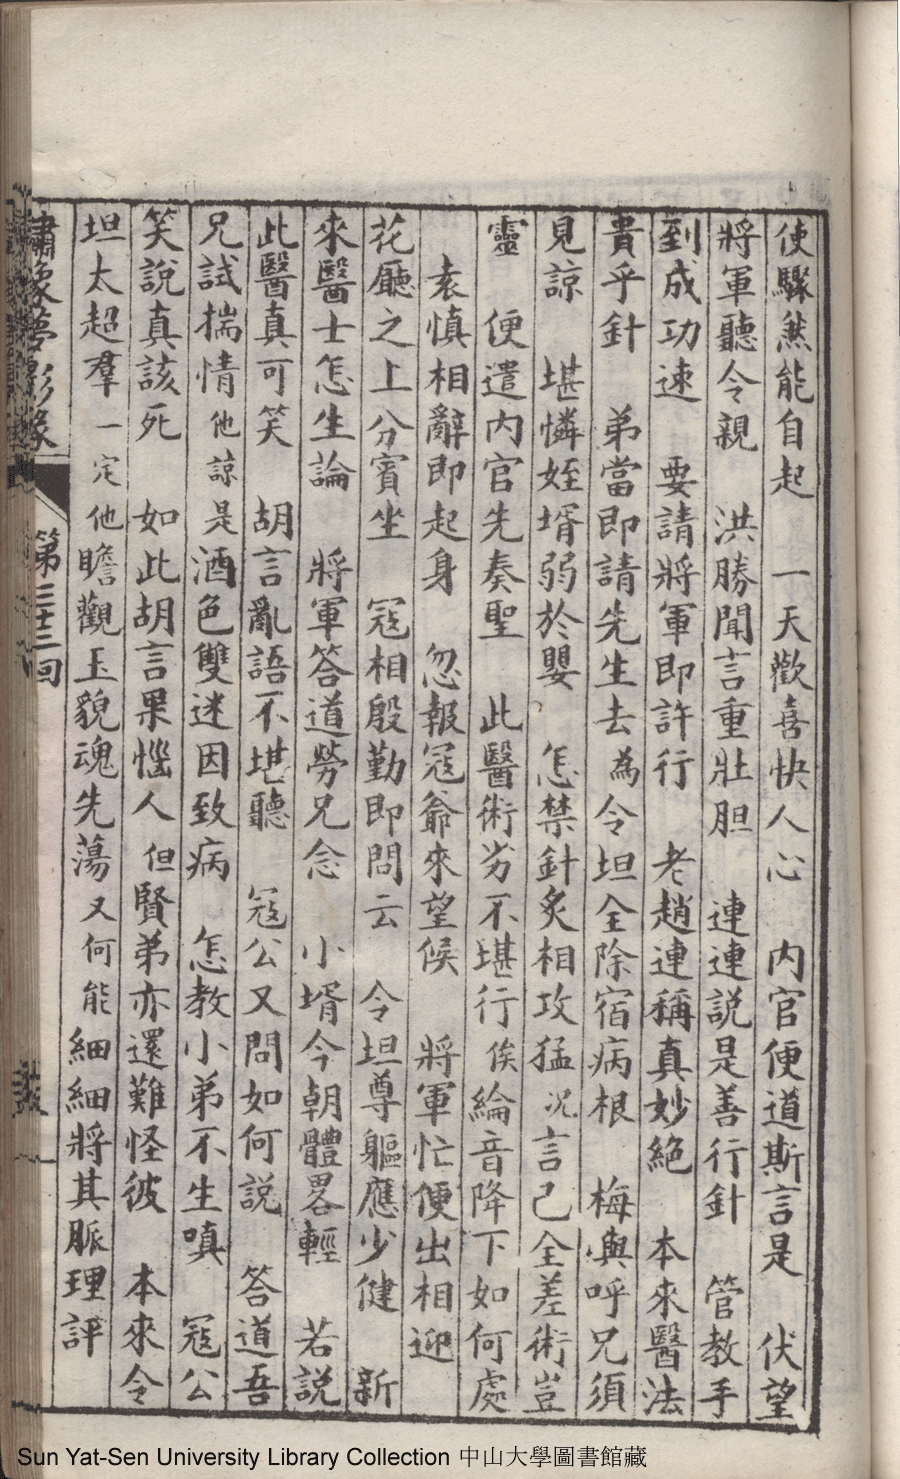 使驟然能自起　一天歡喜快人心　内官便道斯言是　伏望
將軍聽令親　洪勝聞言重壯胆　連連説是善行針　管教手
到成功速　要請將軍即許行　老趙連稱真妙絶　本來醫法
貴乎針　弟當即請先生去為令坦全除宿病根　梅與呼兄須
見諒　堪憐姪壻弱於嬰　怎禁針炙相攻猛况言己全差術豈
靈　便遣内官先奏聖　此醫術劣不堪行俟綸音降下如何處
袁慎相辭即起身　忽報冦爺來望候　將軍忙便出相迎
花廳之上分賓坐　冦相殷勤即問云　令坦尊軀應少健　新
來醫士怎生論　將軍答道勞兄念　小壻今朝體畧輕　若説
此醫真可笑　胡言亂語不堪聽　冦公又問如何説　答道吾
兄試揣情他諒是酒色雙迷因致病　怎教小弟不生嗔　冦公
笑説真該死　如此胡言果惱人但賢弟亦還難怪彼　本來令
坦太超羣一定他瞻觀玉貌魂先蕩又何能細細將其脈理評
繡像夢影緣　第三十三回
Sun Yat-Sen University Library Collection 中山大學圖書館藏